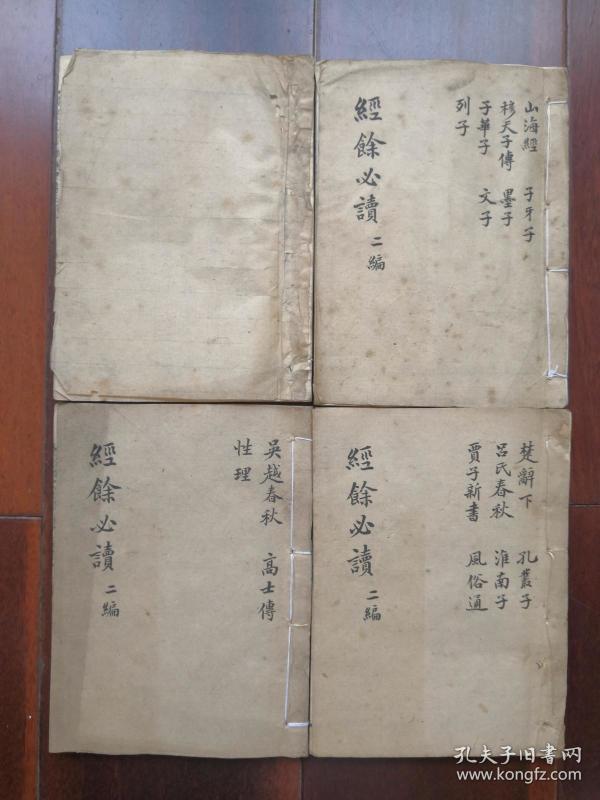 山海經 子牙子
穆天子傳 墨子
子華子 文子
列子
經餘必讀 二編
吳越春秋 高士傳
性理
經餘必讀 二編
楚辭下 孔叢子
呂氏春秋 淮南子
賈子新書 風俗通
經餘必讀 二編
孔夫子旧书网
www.kongfz.com